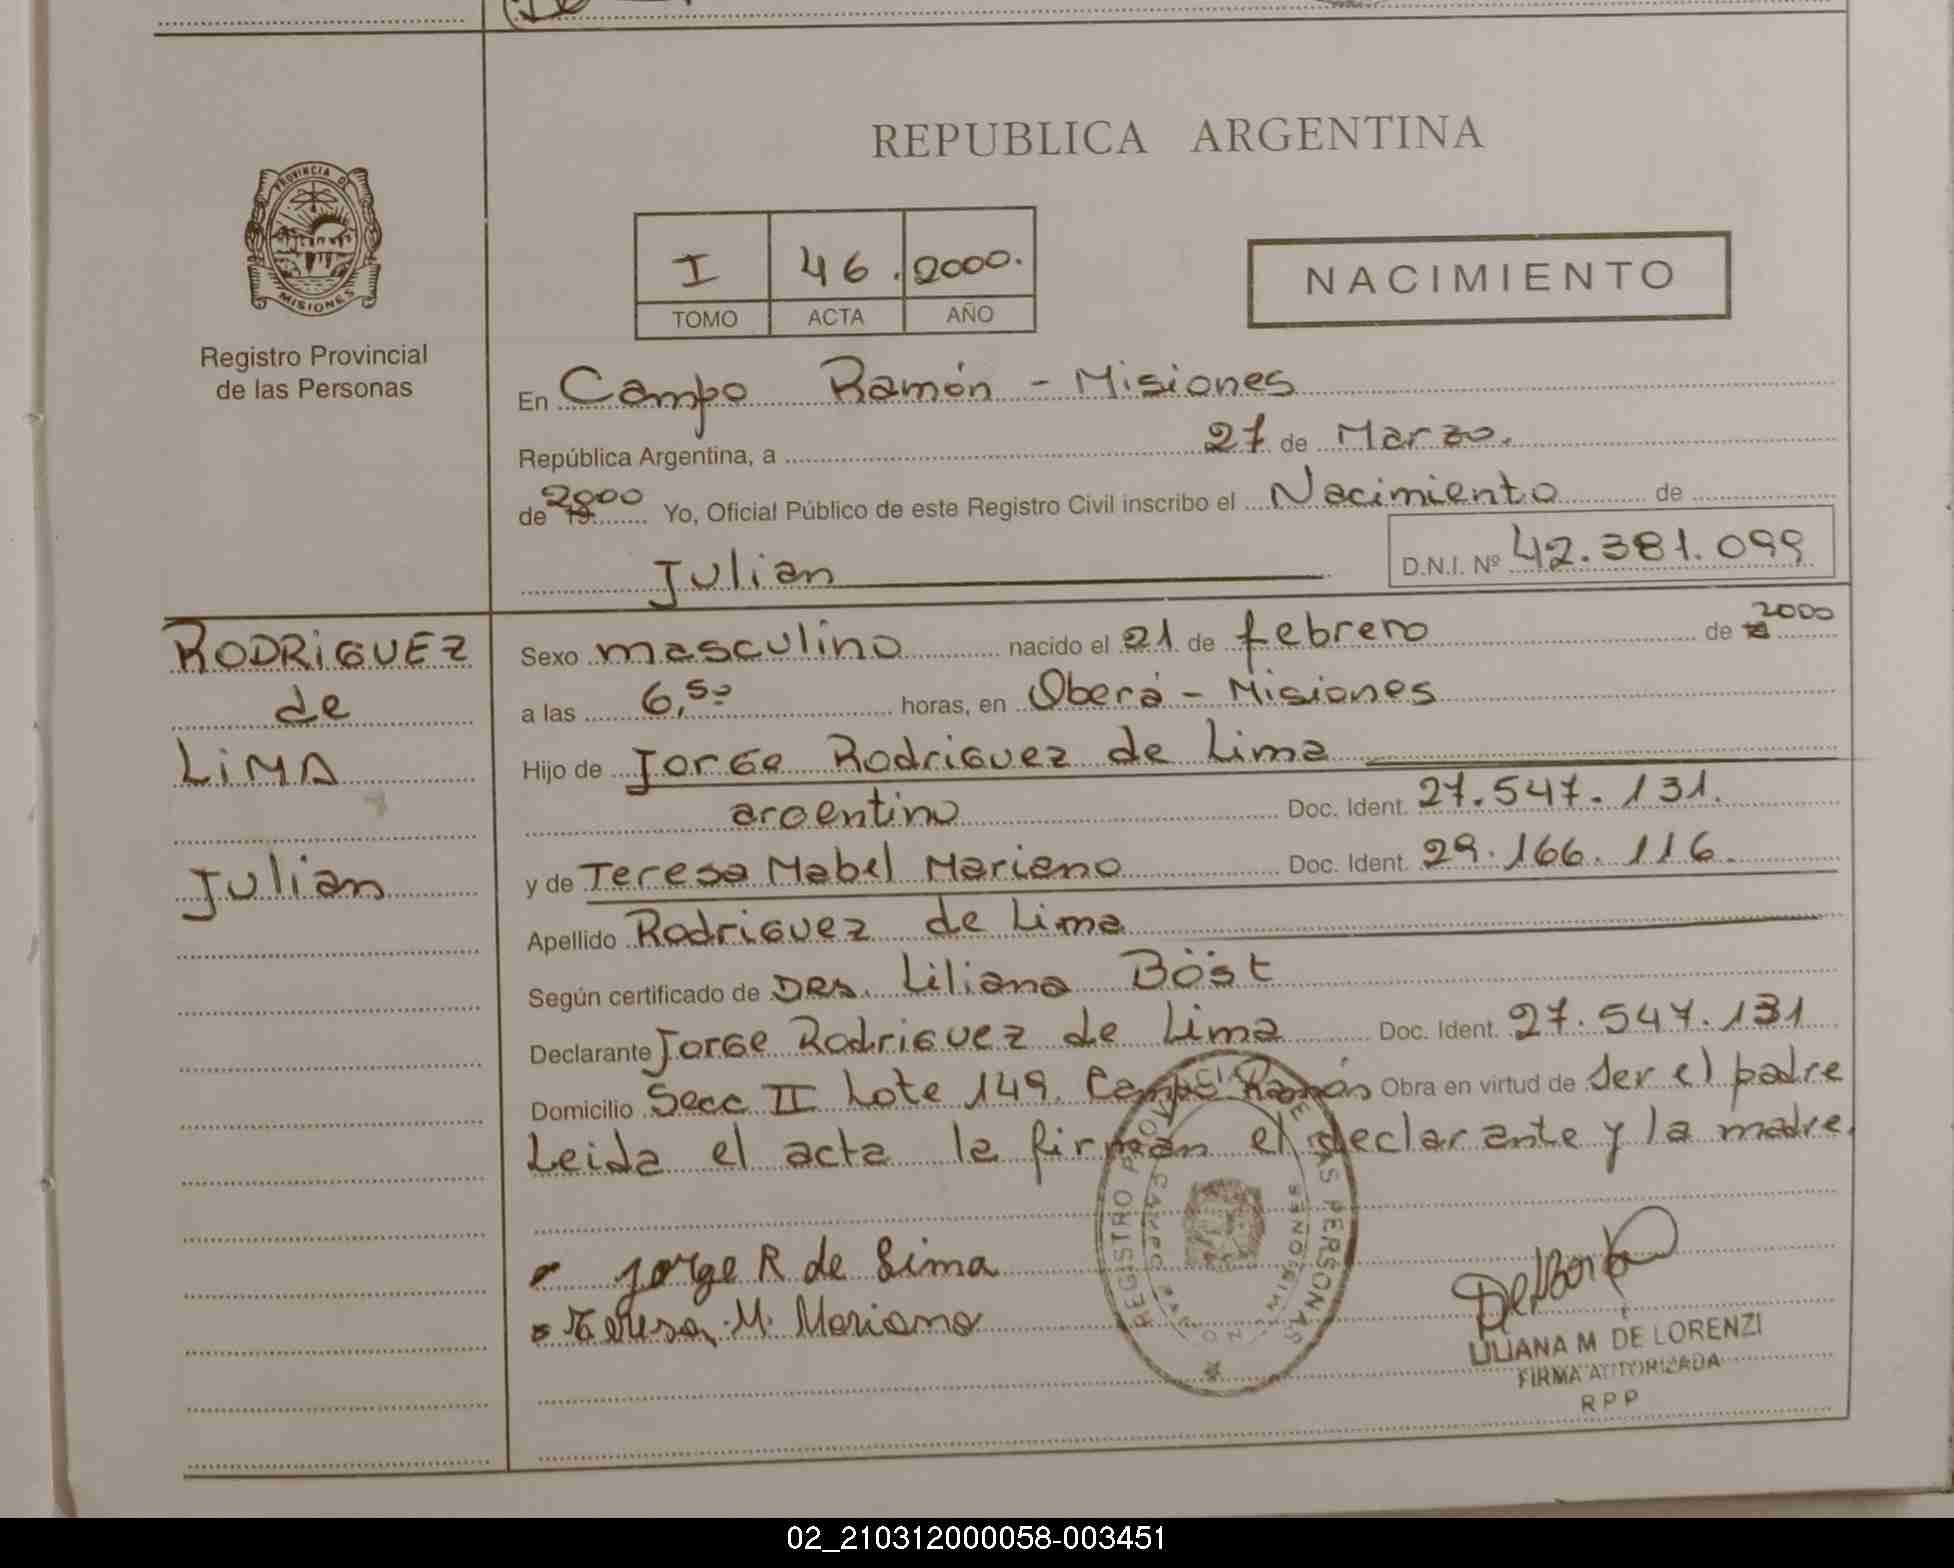 REPUBLICA ARGENTINA
PROVINCIA D
MISIONES
Registro Provincial
de las Personas
I 46. 2000.
TOMO ACTA AÑO
NACIMIENTO
En Campo Ramón - Misiones
República Argentina, a 27 de Marzo.
de 19 2000 Yo, Oficial Público de este Registro Civil inscribo el Nacimiento de
Julian D.N.I. Nº 42.381.099
RODRIGUEZ
de
LIMA
Julian
Sexo masculino nacido el 21 de febrero de 2000
a las 6,50 horas, en Oberá - Misiones
Hijo de Jorge Rodriguez de Lima
argentino Doc. Ident. 27.547.131.
y de Teresa Mabel Mariano Doc. Ident. 29.166.116.
Apellido Rodriguez de Lima
Según certificado de DRA. Liliana Böst
Declarante Jorge Rodriguez de Lima Doc. Ident. 27.547.131
Domicilio Secc II Lote 149. Campo Ramón Obra en virtud de Ser el padre
Leida el acta la firman el declarante y la madre.
Jorge R de Lima
Teresa M. Mariano
REGISTRO PROVINCIAL DE LAS PERSONAS
CAMPO RAMON
MISIONES
LILIANA M DE LORENZI
FIRMA AUTORIZADA
RPP
02_210312000058-003451